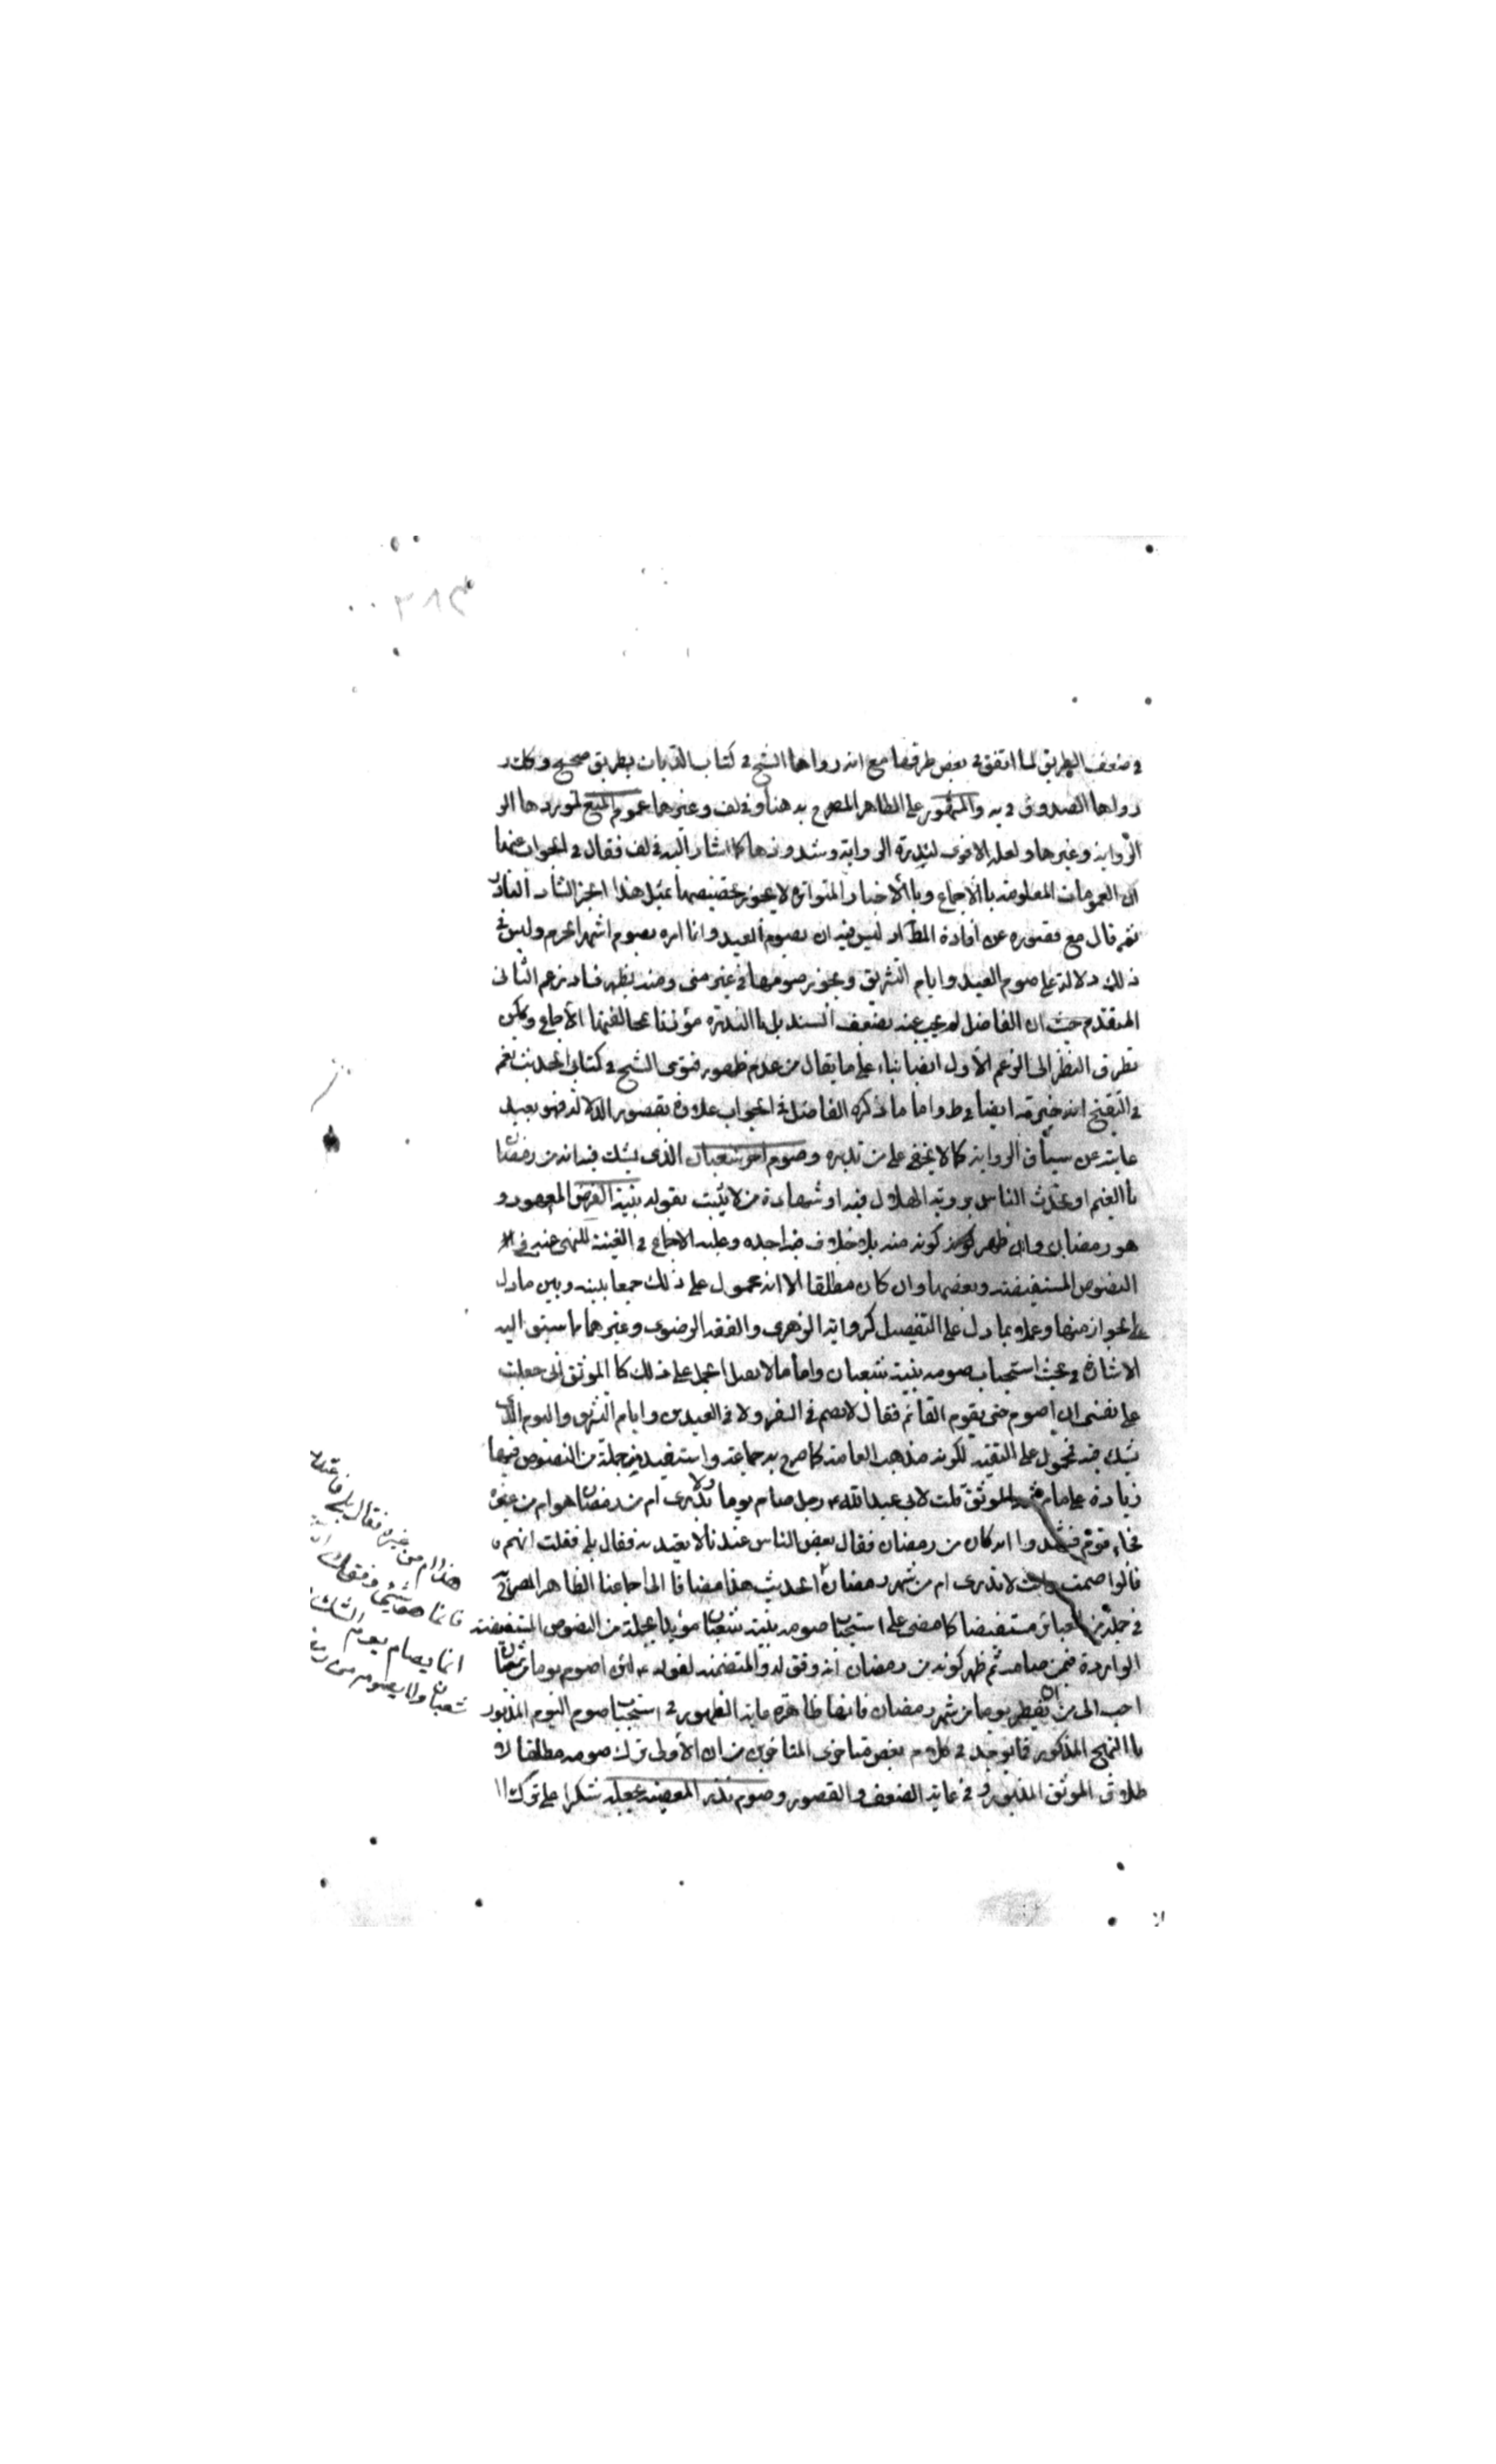 في ضعف الطريق لما اتفق في بعض طرقها مع انه رواها الشيخ في كتاب الديات بطريق صحيح وكذا
رواها الصدوق في يه والمشهور على الظاهر المصرح به هنا وفي لف وغيرهما عموم المنع لموردها
الرواية وغيرها ولعله الاقوى لندرة الرواية وشذوذها كما اشار اليه في لف فقال في الجواب عنها
ان العمومات المعلومة باالاجماع وباالاخبار المتواترة لا يجوز تخصيصها بمثل هذا الخبر الشاذ النادر
ثم قال مع قصوره عن افادة المط اذ ليس فيه ان يصوم العيد وانما امره بصوم اشهر الحرم وليس في
ذلك دلالة على صوم العيد وايام التشريق ويجوز صومها في غير منى ومنه يظهر فساد زعم الثاني
المتقدم حيث ان الفاضل لم يجب عنه بضعف السند بل باالندرة مؤذنا بمخالفتها الاجماع ويمكن
تطرق النظر الى الزعم الاول ايضا بناء على ما يقال من عدم ظهور فتوى الشيخ في كتابي الحديث نعم
في التنقيح انه خيرته ايضا في ط واما ما ذكره الفاضل في الجواب علاوة بقصور الدلالة فهو بعيد
غايته عن سياق الرواية كما لا يخفى على من تدبره وصوم اخر شعبان الذي يشك فيه انه من رمضان
باالغيم او تحدث الناس بروية الهلال فيه او شهادة من لا يثبت بقوله بنية الفرض المعهود و
هو رمضان وان ظهر كونه منه بلا خلاف فيه اجده وعليه الاجماع في الغنية للنهي عنه في
النصوص المستفيضة وبعضها وان كان مطلقا الا انه محمول على ذلك جمعا بينه وبين ما دل
على الجواز منها وعملا بما دل على التفصيل كرواية الزهري والفقه الرضوي وغيرهما مما سبق اليه
الاشارة في بحث استحباب صومه بنية شعبان واما ما لا يقبل الحمل على ذلك كا الموثق اني جعلت
على نفسي ان اصوم حتى يقوم القائم فقال لا تصم في السفر ولا في العيدين وايام التشريق واليوم الذي
يشك فيه فمحمول على التقية لكونه مذهب العامة كما صرح به جماعة واستفيد من جملة من النصوص ففيها
زيادة على ما مر الموثق قلت لابي عبد الله ع رجل صام يوما ولا يدري ام من رمضان هو ام من غيره
فجاء قوم فشهدوا انه كان من رمضان فقال بعض الناس عندنا لا يعتد به فقال بلى فقلت انهم
قالوا صمت وانت لا تدري ام من شهر رمضان الحديث هذا مضافا الى اجماعنا الظاهر المصرح به
في جملة من العبائر مستفيضا كما مضى على استحباب صومه بنية شعبان مؤيدا بجملة من النصوص المستفيضة
الواردة فيمن صامه ثم ظهر كونه من رمضان انه وفق له والمتضمنة لقوله ع لئن اصوم يوما من شعبان
احب الي من ان يفطر يوما من شهر رمضان فانها ظاهرة غاية الظهور في استحباب صوم اليوم المزبور
باالنهج المذكور فما يوجد في كلام بعض متاخري المتاخرين من ان الاولى ترك صومه مطلقا لا
طلاق الموثق المزبور في غاية الضعف والقصور وصوم نذر المعصية بجعله شكرا على ترك
هذا ام من غيره فقال بلى فاعتد
فانما هو شيئ وفقك
انما يصام يوم الشك
شعبان ولا يصومه من